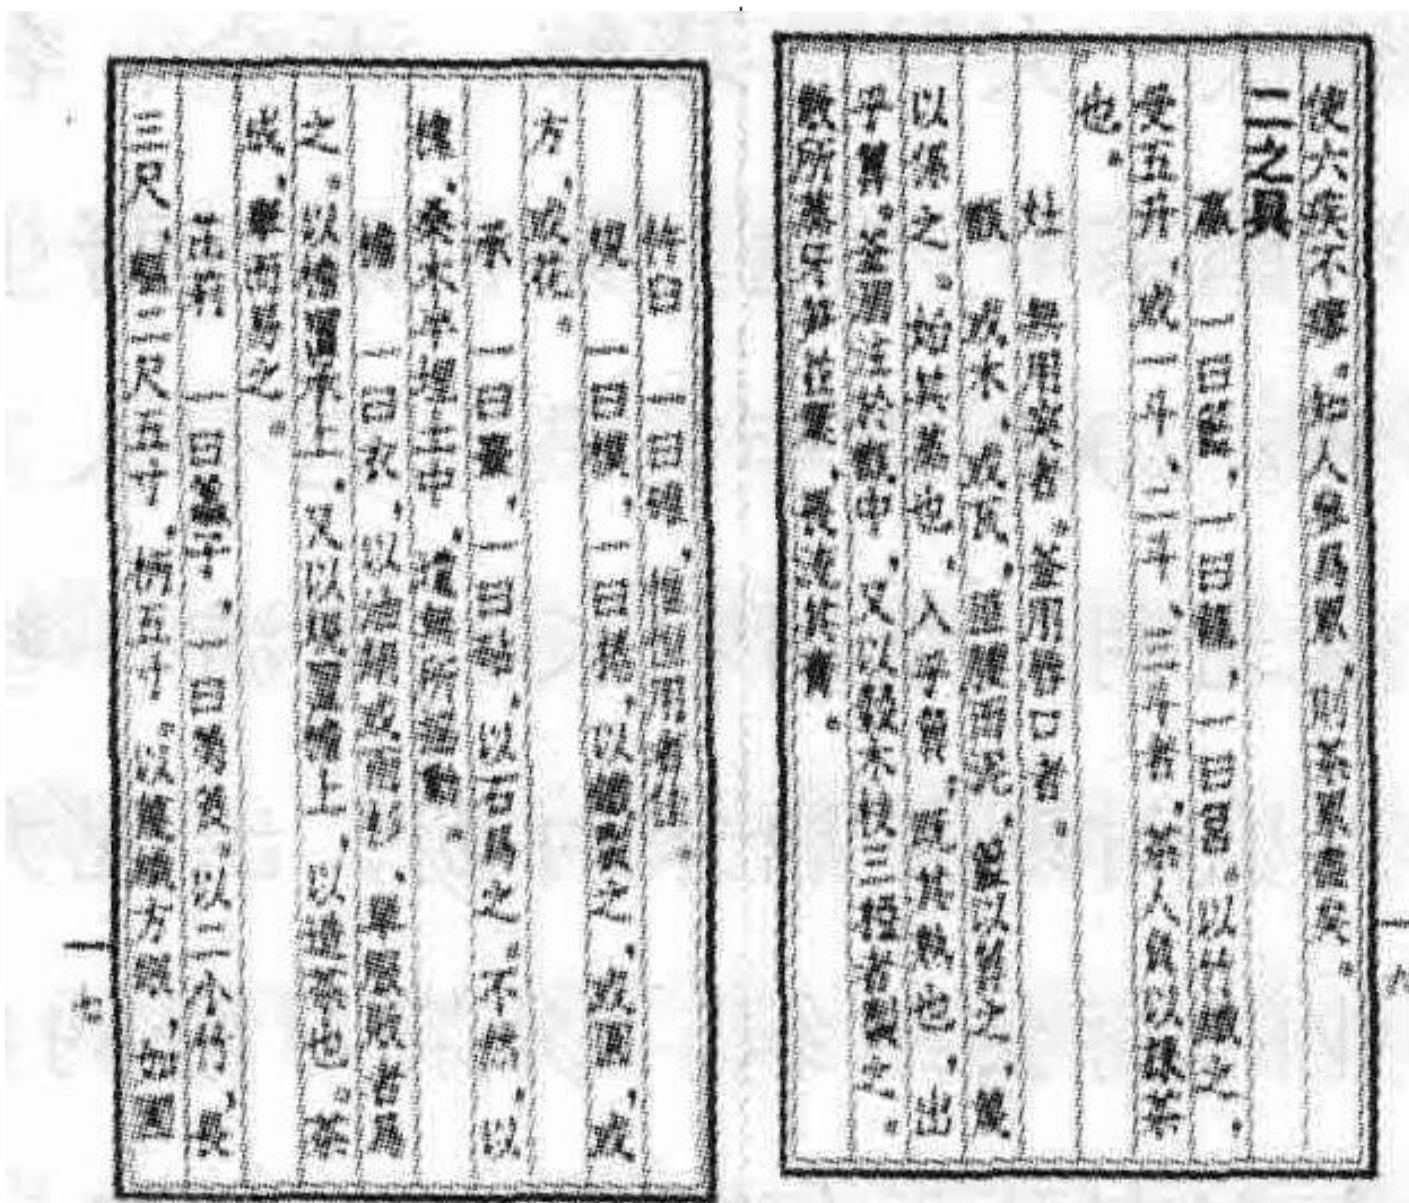 使六疾不瘳。知人參爲累，則茶累盡矣。
二之具
籯　一曰籃，一曰籠，一曰筥。以竹織之，
受五升，或一斗、二斗、三斗者，茶人負以採茶
也。
灶　無用突者。釜用唇口者。
甑　或木，或瓦，匪腰而泥，籃以箄之，篾
以系之。始其蒸也，入乎箄，既其熟也，出
乎箄。釜涸注於甑中，又以榖木枝三椏者製之。
散所蒸牙笋並葉，畏流其膏。
杵臼　一曰碓，惟恆用者佳。
規　一曰模，一曰棬，以鐵製之，或圓，或
方，或花。
承　一曰臺，一曰砧，以石爲之。不然，以
槐、桑木半埋土中，遣無所搖動。
襜　一曰衣，以油絹或雨衫、單服敗者爲
之。以襜置承上，又以規置襜上，以造茶也。茶
成，舉而易之。
芘莉　一曰羸子，一曰蒡筤。以二小竹，長
三尺，軀二尺五寸，柄五寸。以篾織方眼，如圃
一七